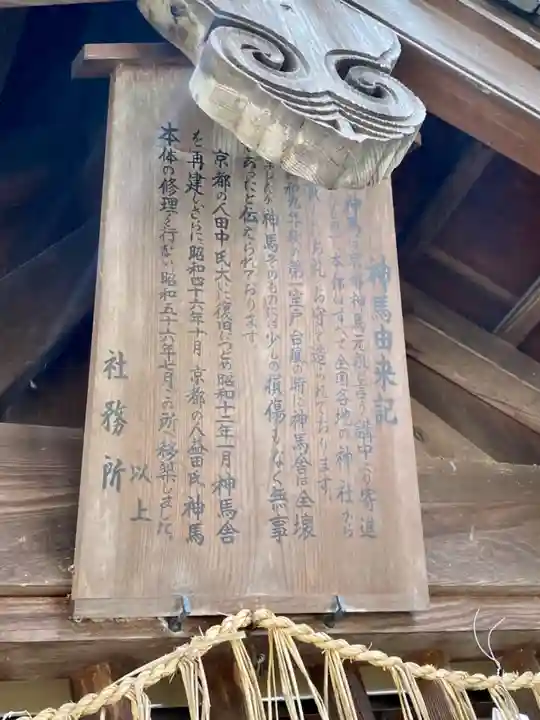 神馬由来記
神馬は京都神馬元礼と言う講中より寄進
本体はすべて全国各地の神社から
お札、お守で造られております。
昭和九年秋の第一室戸台風の際に神馬舎は全壊
しましたが神馬そのものには少しの損傷もなく無事
であったと伝えられております。
京都の人田中氏大いに復旧につとめ昭和十二年一月神馬舎
を再建しさらに昭和四十六年十月京都の人益田氏神馬
本体の修理を行ない昭和五十六年七月この所へ移築しました。
以上
社務所